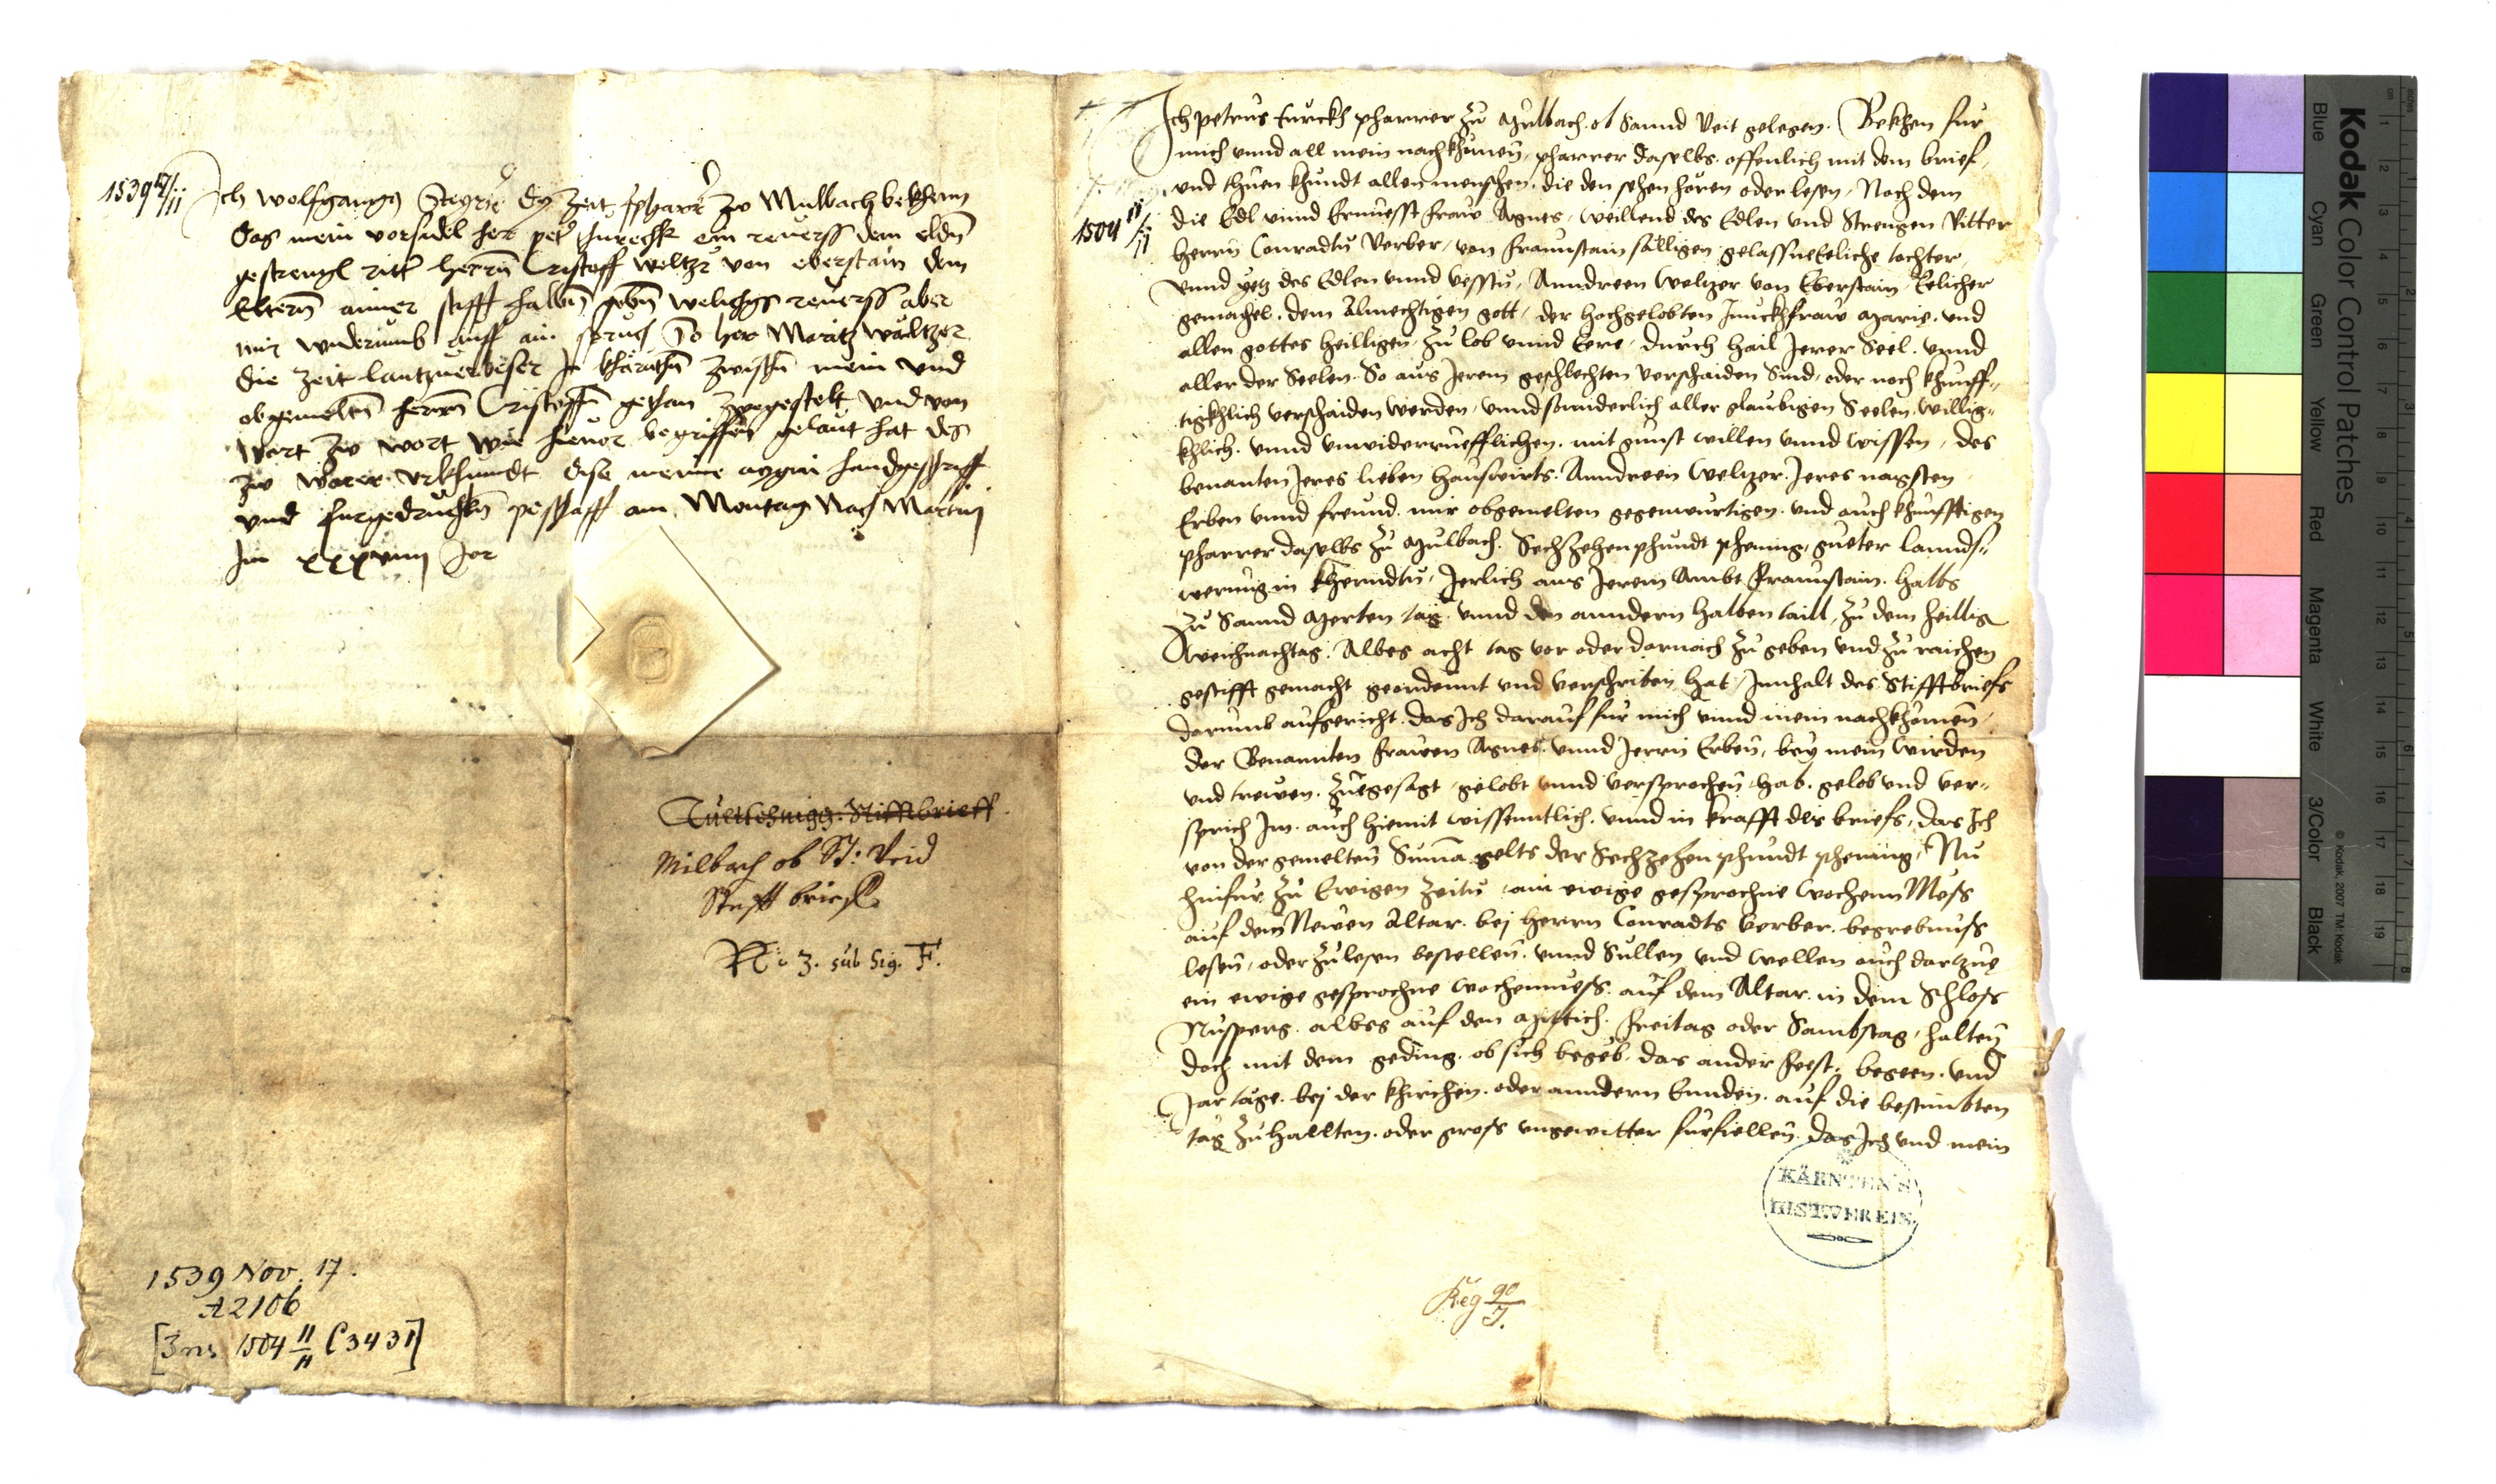 1539 17/11
Ich Wolfgangg Steyrer dy zeit pharrer zw Mulbach bekhenn
Das mein vorfudel her peter thurechk ein reuerss dem eldn
gestrengl ritter herrn Cristoff weltzr von eberstain dem
Eltern ainer stifft halbn gebn welichss reuerss aber
mir widerumb auff ain spruch So her Moritz waltzer
die zeit lantzuerbeser In kharnthn zwischn mein und
obgemelten herrn Cristoffn gethan zwgestelt und von
Wort zw wort wie hieuor begriffen gelaut hat des
zw warer urkhundt dise meine aygni handgschrifft
und furgedruchkn petschafft am Montag Nach Martinj
Im xxxviiij Jor
Stifftbrieff
Milbach ob St: Veid
Stifft brieff
No 3. sub Sig. F.
1539 Nov. 17.
A2106
[Ins 1504 11/11 C3431]
1504 11/11
Ich petrus turckh pharrer zu Mulbach. ob Sannd Veit gelegen. Bekhen fur
mich vnnd all mein nachkhumen, pharrer daselbs. offenlich mit dem brief,
vnd thuen khundt allen menschen. die den sehen horen oder lesen, Nach dem
die Edl vnnd Ernuesst fraw Agnes, weillend des Edlen vnd Strengen Ritter
herrn Conradtn Verber, von fraunstain sälligen gelassne Eeliche tochter,
vnnd yetz des Edlen vnnd vesstn, Anndreen Weltzer von Eberstain, Eelicher
gemahel. dem Almechtigen gott, der hochgelobten Junckhfraw Marie. vnd
allen gottes heilligen, zu lob vnnd Eere, durch hail Jerer Seel. vnnd
aller der Seelen. So aus Jerem geschlechten verschaiden Sind, oder noch khunff„
tigkhlich verschaiden werden, vnnd sunnderlich aller glaubigen Seelen. willig„
khlich. vnnd vnwiderruefflichen. mit gunst willen vnnd wissen, des
benanten Jeres lieben hauswirts. Anndreen Weltzer. Jeres nagsten
Erben vnnd freund. mir obgemelten gegenwurtigen. vnd auch khunfftigen
pharrer daselbs zu Mulbach. Sechzehen phundt phening, gueter lannds„
werung in Kherndtn, Jerlich aus Jerem Ambt fraunstain. halbs
zu Sannd Merten tag vnnd den anndern halben taill, zu dem heillig
Weichnachtag. Albes acht tag vor oder darnach zu geben vnd zu raichen
gestifft gemacht geordennt vnd verschriben hat, Innhalt des Stifftbriefs
darumb aufgericht. das Ich darauf fur mich vnnd mein nachkhomen,
der Benannten frawen Agnes. vnnd Jerrn Erben, bey mein wirden
vnd trewen. zuegesagt, gelobt vnnd versprochen, hab. gelob vnd ver„
sprich Im. auch hiemit wissenntlich. vnnd in krafft des briefs, das Ich
von der gemelten Suma gelts der Sechzehen phundt phening, Nu
hinfur zu Ewigen zeitn, ain ewige gesprochne Wochenn Mess
auf dem Newen Altar. bej herrn Conradts Verber. begrebnuss
lesen, oder zu lesen bestellen. vnnd Sullen vnd wellen auch dartzue
ein ewige gesprochne wochenmess. auf dem Altar. in dem Schloss
Nusperg. albeg auf den Mittich. freitag oder Sambstag, halten
doch mit dem geding. ob sich begeb. das ander fest, begeen. vnd
Jar tage. bej der khirchen. oder anndern Eunden. auf die bestimbten
tag zu hallten. oder gross vngewitter furfiellen. das Ich vnd mein
KÄRNTEN'S
HIST.VEREIN.
Reg 90/J.
Kodak Color Control Patches
Blue Cyan Green Yellow Red Magenta White 3/Color Black
© Kodak, 2007 TM: Kodak
inches 1 2 3 4 5 6 7 8
cm 1 2 3 4 5 6 7 8 9 10 11 12 13 14 15 16 17 18 19